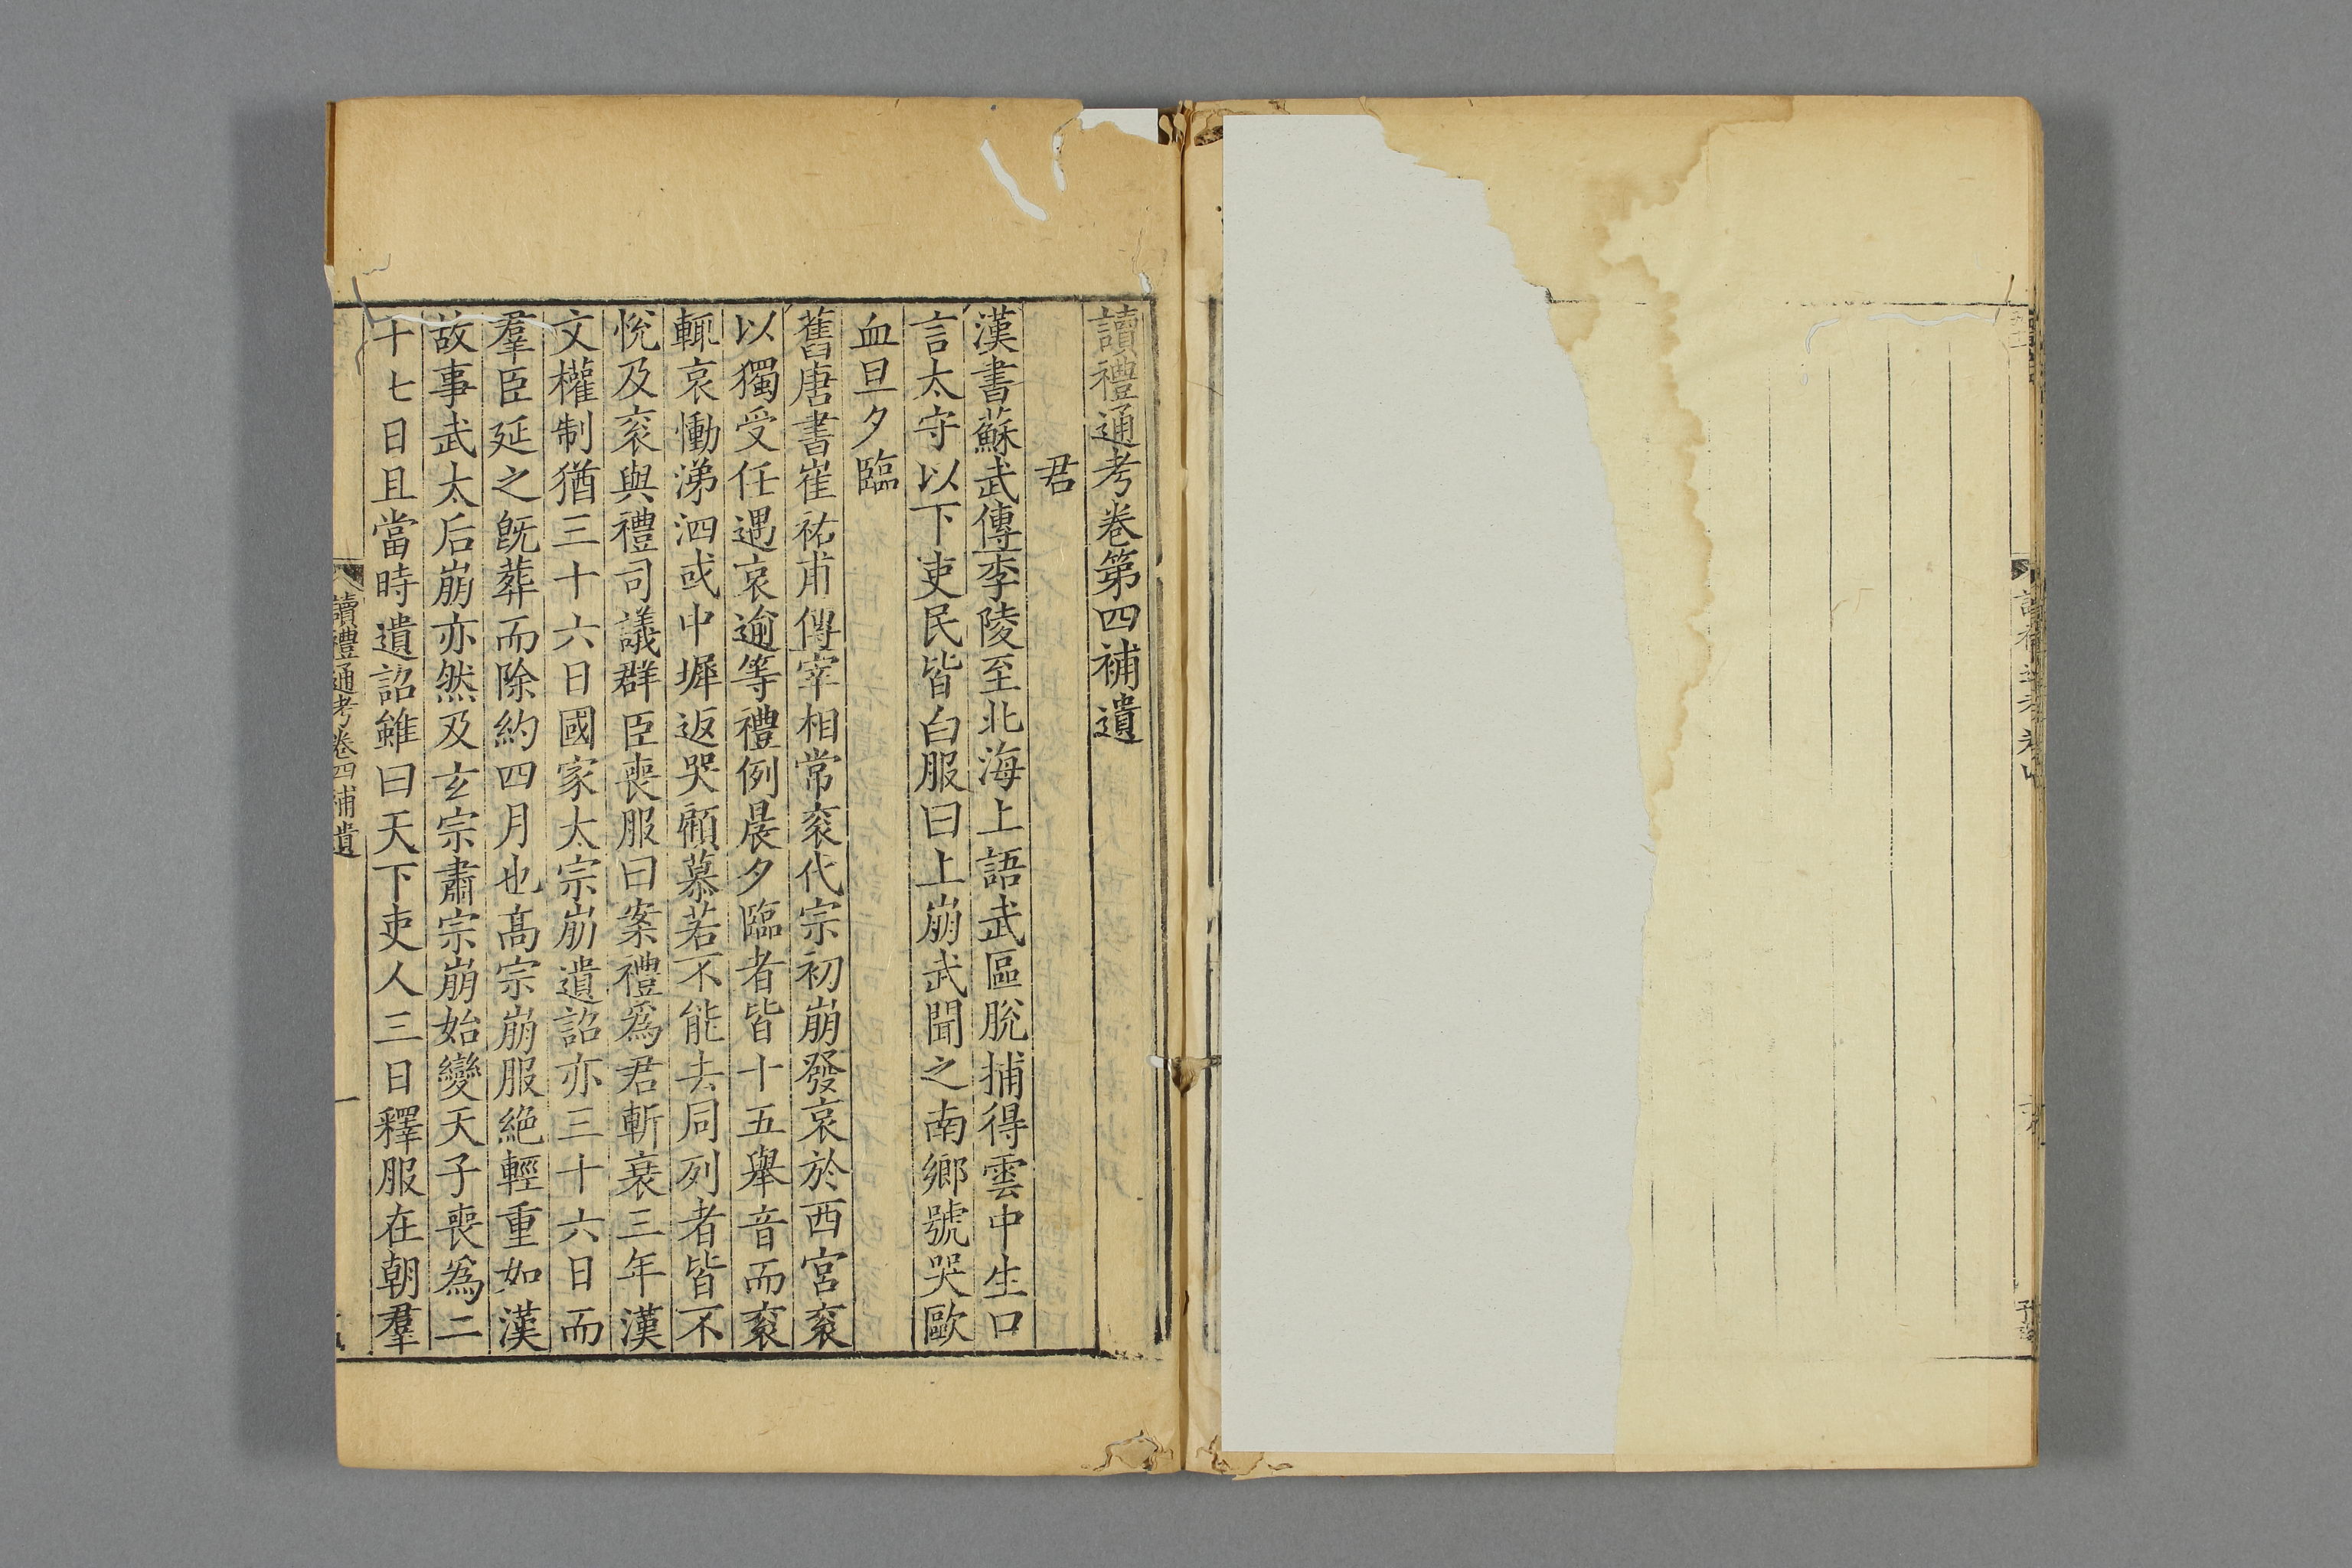 讀禮通考卷第四補遺
君
漢書蘇武傳李陵至北海上語武區脫捕得雲中生口
言太守以下吏民皆白服曰上崩武聞之南鄉號哭歐
血旦夕臨
舊唐書崔祐甫傳宰相常袞代宗初崩發哀於西宮袞
以獨受任遇哀逾等禮例晨夕臨者皆十五舉音而袞
輒哀慟涕泗或中墀返哭顧慕若不能去同列者皆不
悅及袞與禮司議群臣喪服曰案禮爲君斬衰三年漢
文權制猶三十六日國家太宗崩遺詔亦三十六日而
羣臣延之旣葬而除約四月也高宗崩服絕輕重如漢
故事武太后崩亦然及玄宗肅宗崩始變天子喪爲二
十七日且當時遺詔雖曰天下吏人三日釋服在朝羣
讀禮通考卷四補遺
一